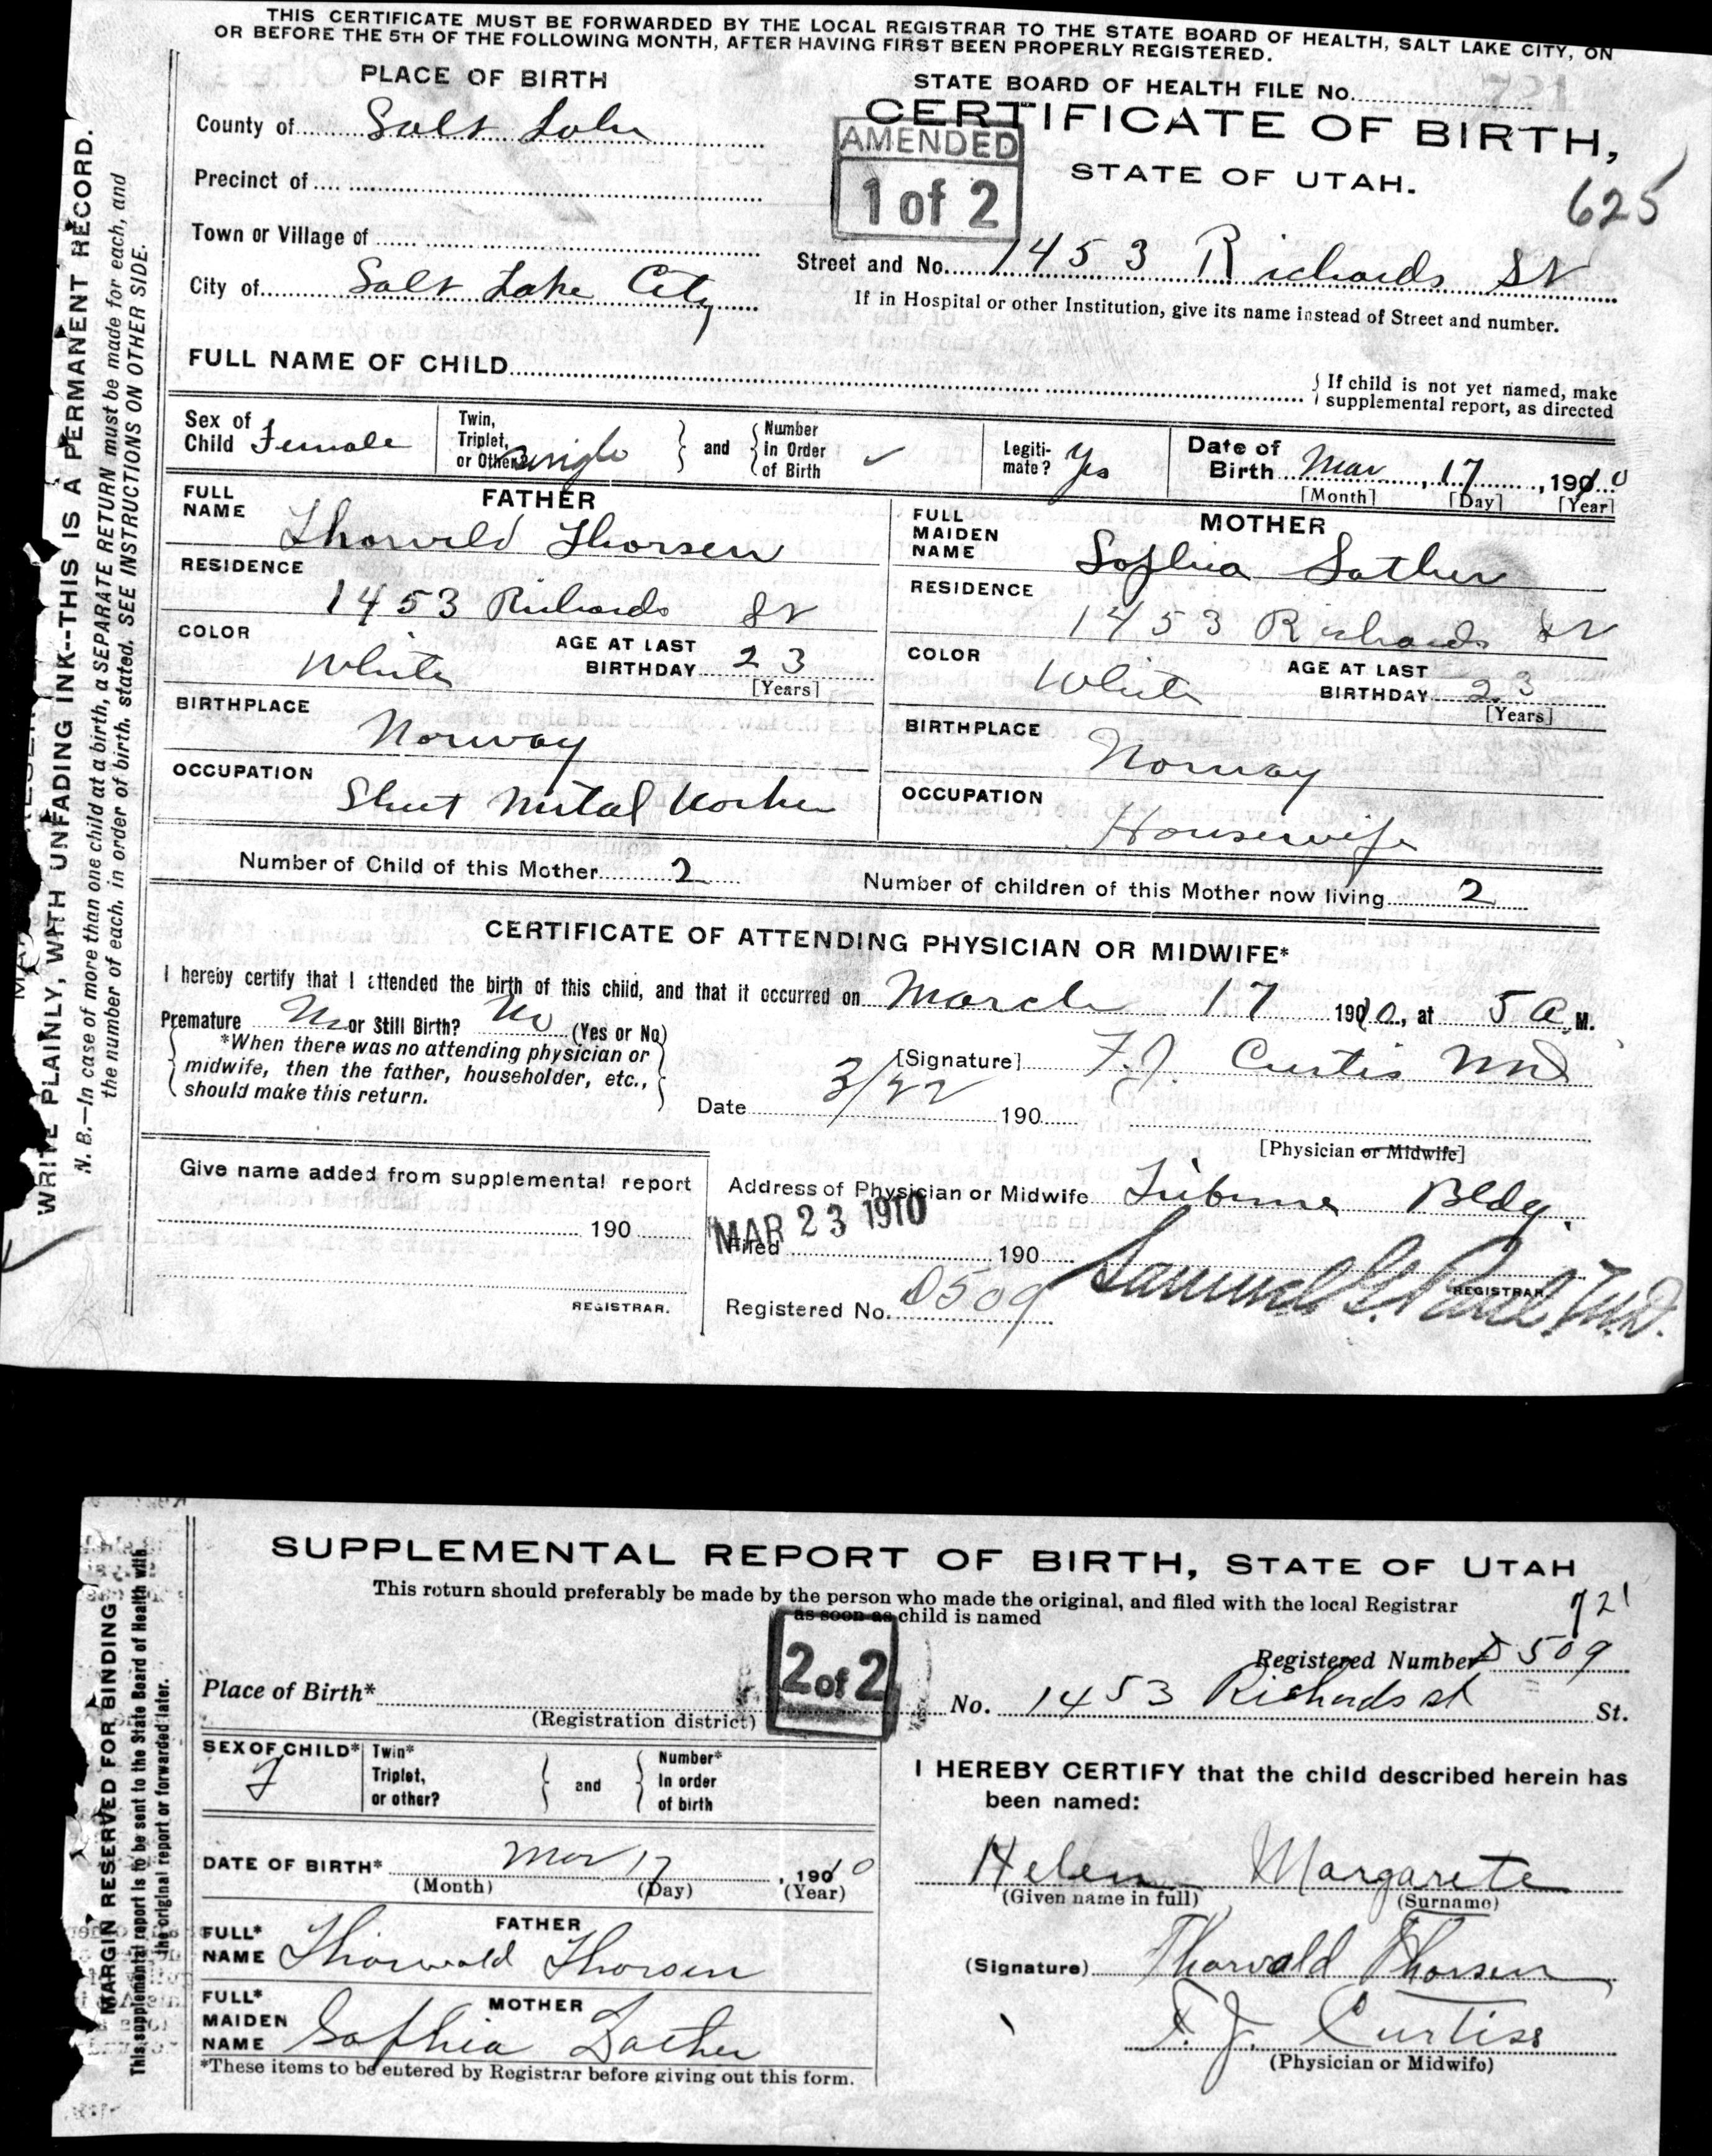 THIS CERTIFICATE MUST BE FORWARDED BY THE LOCAL REGISTRAR TO THE STATE BOARD OF HEALTH, SALT LAKE CITY, ON
OR BEFORE THE 5TH OF THE FOLLOWING MONTH, AFTER HAVING FIRST BEEN PROPERLY REGISTERED.
PLACE OF BIRTH
STATE BOARD OF HEALTH FILE No.
CERTIFICATE OF BIRTH,
STATE OF UTAH.
AMENDED
1 of 2
625
County of Salt Lake
Precinct of
Town or Village of
City of Salt Lake City
Street and No. 1453 Richards St
If in Hospital or other Institution, give its name instead of Street and number.
FULL NAME OF CHILD
If child is not yet named, make
supplemental report, as directed
Sex of Child Female
Twin, Triplet, or Other? single
and
Number in Order of Birth ✓
Legitimate? Yes
Date of Birth Mar 17, 1910
[Month] [Day] [Year]
FATHER
FULL NAME Thorvald Thorsen
RESIDENCE 1453 Richards St
COLOR White
AGE AT LAST BIRTHDAY 23
[Years]
BIRTHPLACE Norway
OCCUPATION Sheet Metal Worker
MOTHER
FULL MAIDEN NAME Sophia Sather
RESIDENCE 1453 Richards St
COLOR White
AGE AT LAST BIRTHDAY 23
[Years]
BIRTHPLACE Norway
OCCUPATION Housewife
Number of Child of this Mother 2
Number of children of this Mother now living 2
CERTIFICATE OF ATTENDING PHYSICIAN OR MIDWIFE*
I hereby certify that I attended the birth of this child, and that it occurred on March 17 1910, at 5 A. M.
Premature No or Still Birth? No (Yes or No)
*When there was no attending physician or
midwife, then the father, householder, etc.,
should make this return.
[Signature] F.J. Curtis MD
Date 3/22 190
[Physician or Midwife]
Give name added from supplemental report
190
REGISTRAR.
Address of Physician or Midwife Tribune Bldg.
MAR 23 1910
Filed 190
Samuel G. Paul, M.D.
REGISTRAR.
Registered No. D509
WRITE PLAINLY, WITH UNFADING INK--THIS IS A PERMANENT RECORD.
N. B.—In case of more than one child at a birth, a SEPARATE RETURN must be made for each, and
the number of each, in order of birth, stated. SEE INSTRUCTIONS ON OTHER SIDE.
SUPPLEMENTAL REPORT OF BIRTH, STATE OF UTAH
This return should preferably be made by the person who made the original, and filed with the local Registrar
as soon as child is named
721
2 of 2
Registered Number D509
Place of Birth*
(Registration district)
No. 1453 Richards st St.
SEX OF CHILD* F
Twin* Triplet, or other?
and
Number* In order of birth
DATE OF BIRTH* Mar 17, 1910
(Month) (Day) (Year)
FATHER
FULL* NAME Thorwald Thorsen
MOTHER
FULL* MAIDEN NAME Sophia Sather
*These items to be entered by Registrar before giving out this form.
I HEREBY CERTIFY that the child described herein has
been named:
Helen Margarete
(Given name in full) (Surname)
(Signature) Thorvald Thorsen
F. J. Curtiss
(Physician or Midwife)
MARGIN RESERVED FOR BINDING
This supplemental report is to be sent to the State Board of Health with
the original report or forwarded later.